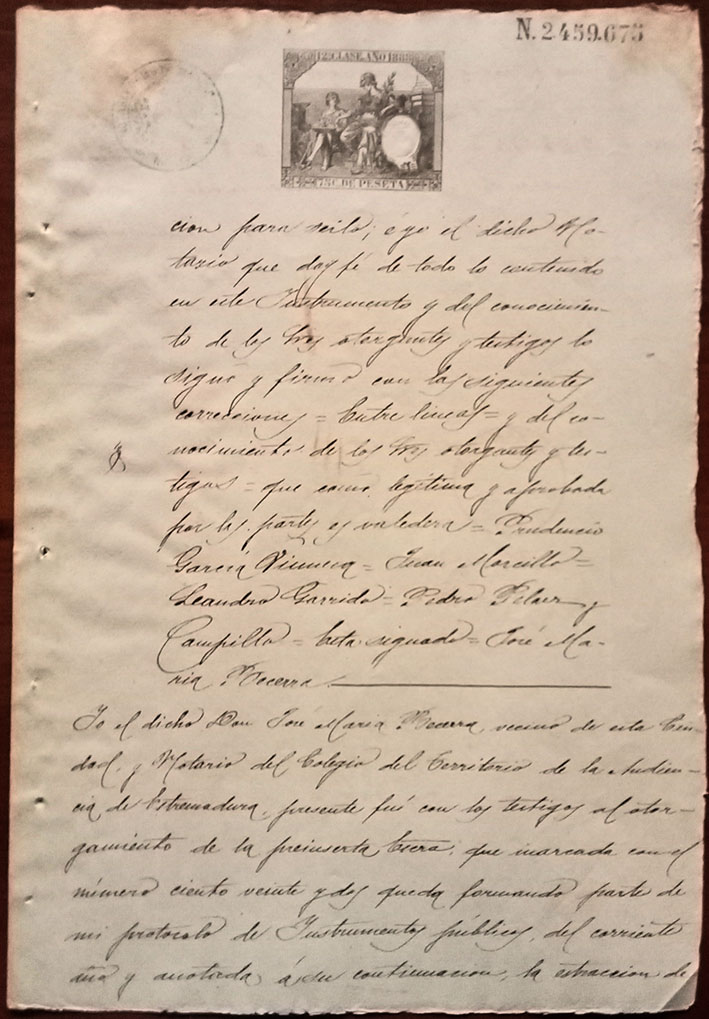 N. 2.459.675
12ª CLASE. AÑO 188
75 C. DE PESETA
cion para serlo; é yo el dicho No-
tario que doy fé de todo lo contenido
en este Instrumento y del conocimien-
to de los Sres otorgantes y testigos lo
signo y firmo con las siguientes
correcciones = Entre lineas = y del co-
nocimiento de los Sres otorgantes y tes-
tigos = que como legítima y aprobada
por las partes es valedera = Prudencio
García = Juan Morcillo =
Leandro Garrido = Pedro Pelaez y
Campillo = Esta signado = José Ma-
ria Becerra
Yo el dicho Don José María Becerra, vecino de esta Ciu-
dad, y Notario del Colegio del Territorio de la Audien-
cia de Estremadura, presente fuí con los testigos al otor-
gamiento de la preinserta Escra. que marcada con el
número ciento veinte y dos queda formando parte de
mi protocolo de Instrumentos públicos, del corriente
año y anotada á su continuacion, la estraccion de